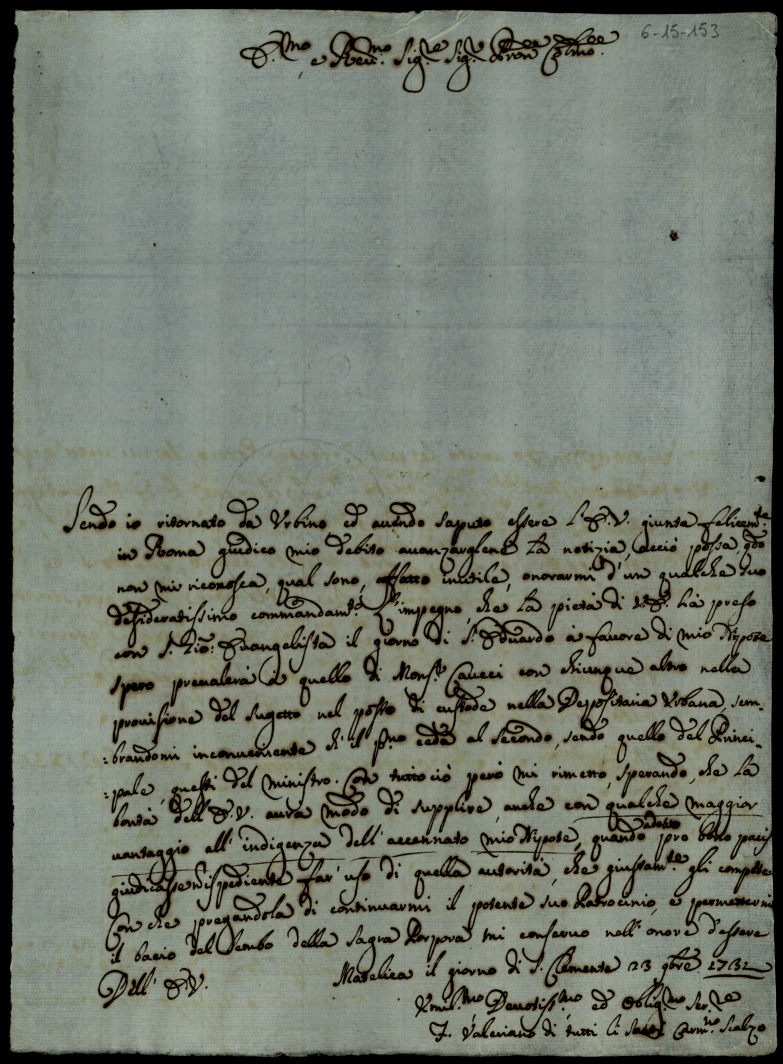 6-15-153
E.mo e Rev.mo Sig.re Sig.r Pron Colmo.
Sendo io ritornato da Urbino ed avendo saputo essere l'E.V. giunta felicem.te
in Roma giudico mio debito avanzargliene la notizia, acciò possa, qdo
non mi riconosca, qual sono, affatto inutile, onorarmi d'un qualche suo
desideratissimo commandam.to L'impegno, che la pietà di V.E. hà preso
con S. Gio: Evangelista il giorno di S. Eduardo à favore di mio Nipote
spero prevalerà à quello di Mons.r Caucci con chicunque altro nella
provisione del sugetto nel posto di custode nella Depositaria Urbana, sem-
:brandomi inconveniente ch'il p.mo ceda al secondo, sendo quello del Princi-
:pale, questi del ministro. Con tutto ciò però mi rimetto, sperando, che la
bontà dell'E.V. avrà modo di supplire, anche con qualche maggior
vantaggio all'indigenza dell'accennato mio Nipote, quando pro bono pacis
giudicasse ispediente far' uso di quella autorità, che giustam.te gli compete
Con che pregandola di continuarmi il potente suo Patrocinio, e permettermi
il bacio del lembo della Sagra Porpora mi conservo nell'onore d'essere
Dell'E.V. Matelica il giorno di S. Clemente 23 9bre 1732
Umil.mo Devotiss.mo ed Oblig.mo Ser.re
F. Valeriano di tutti li Santi Carm.no Scalzo